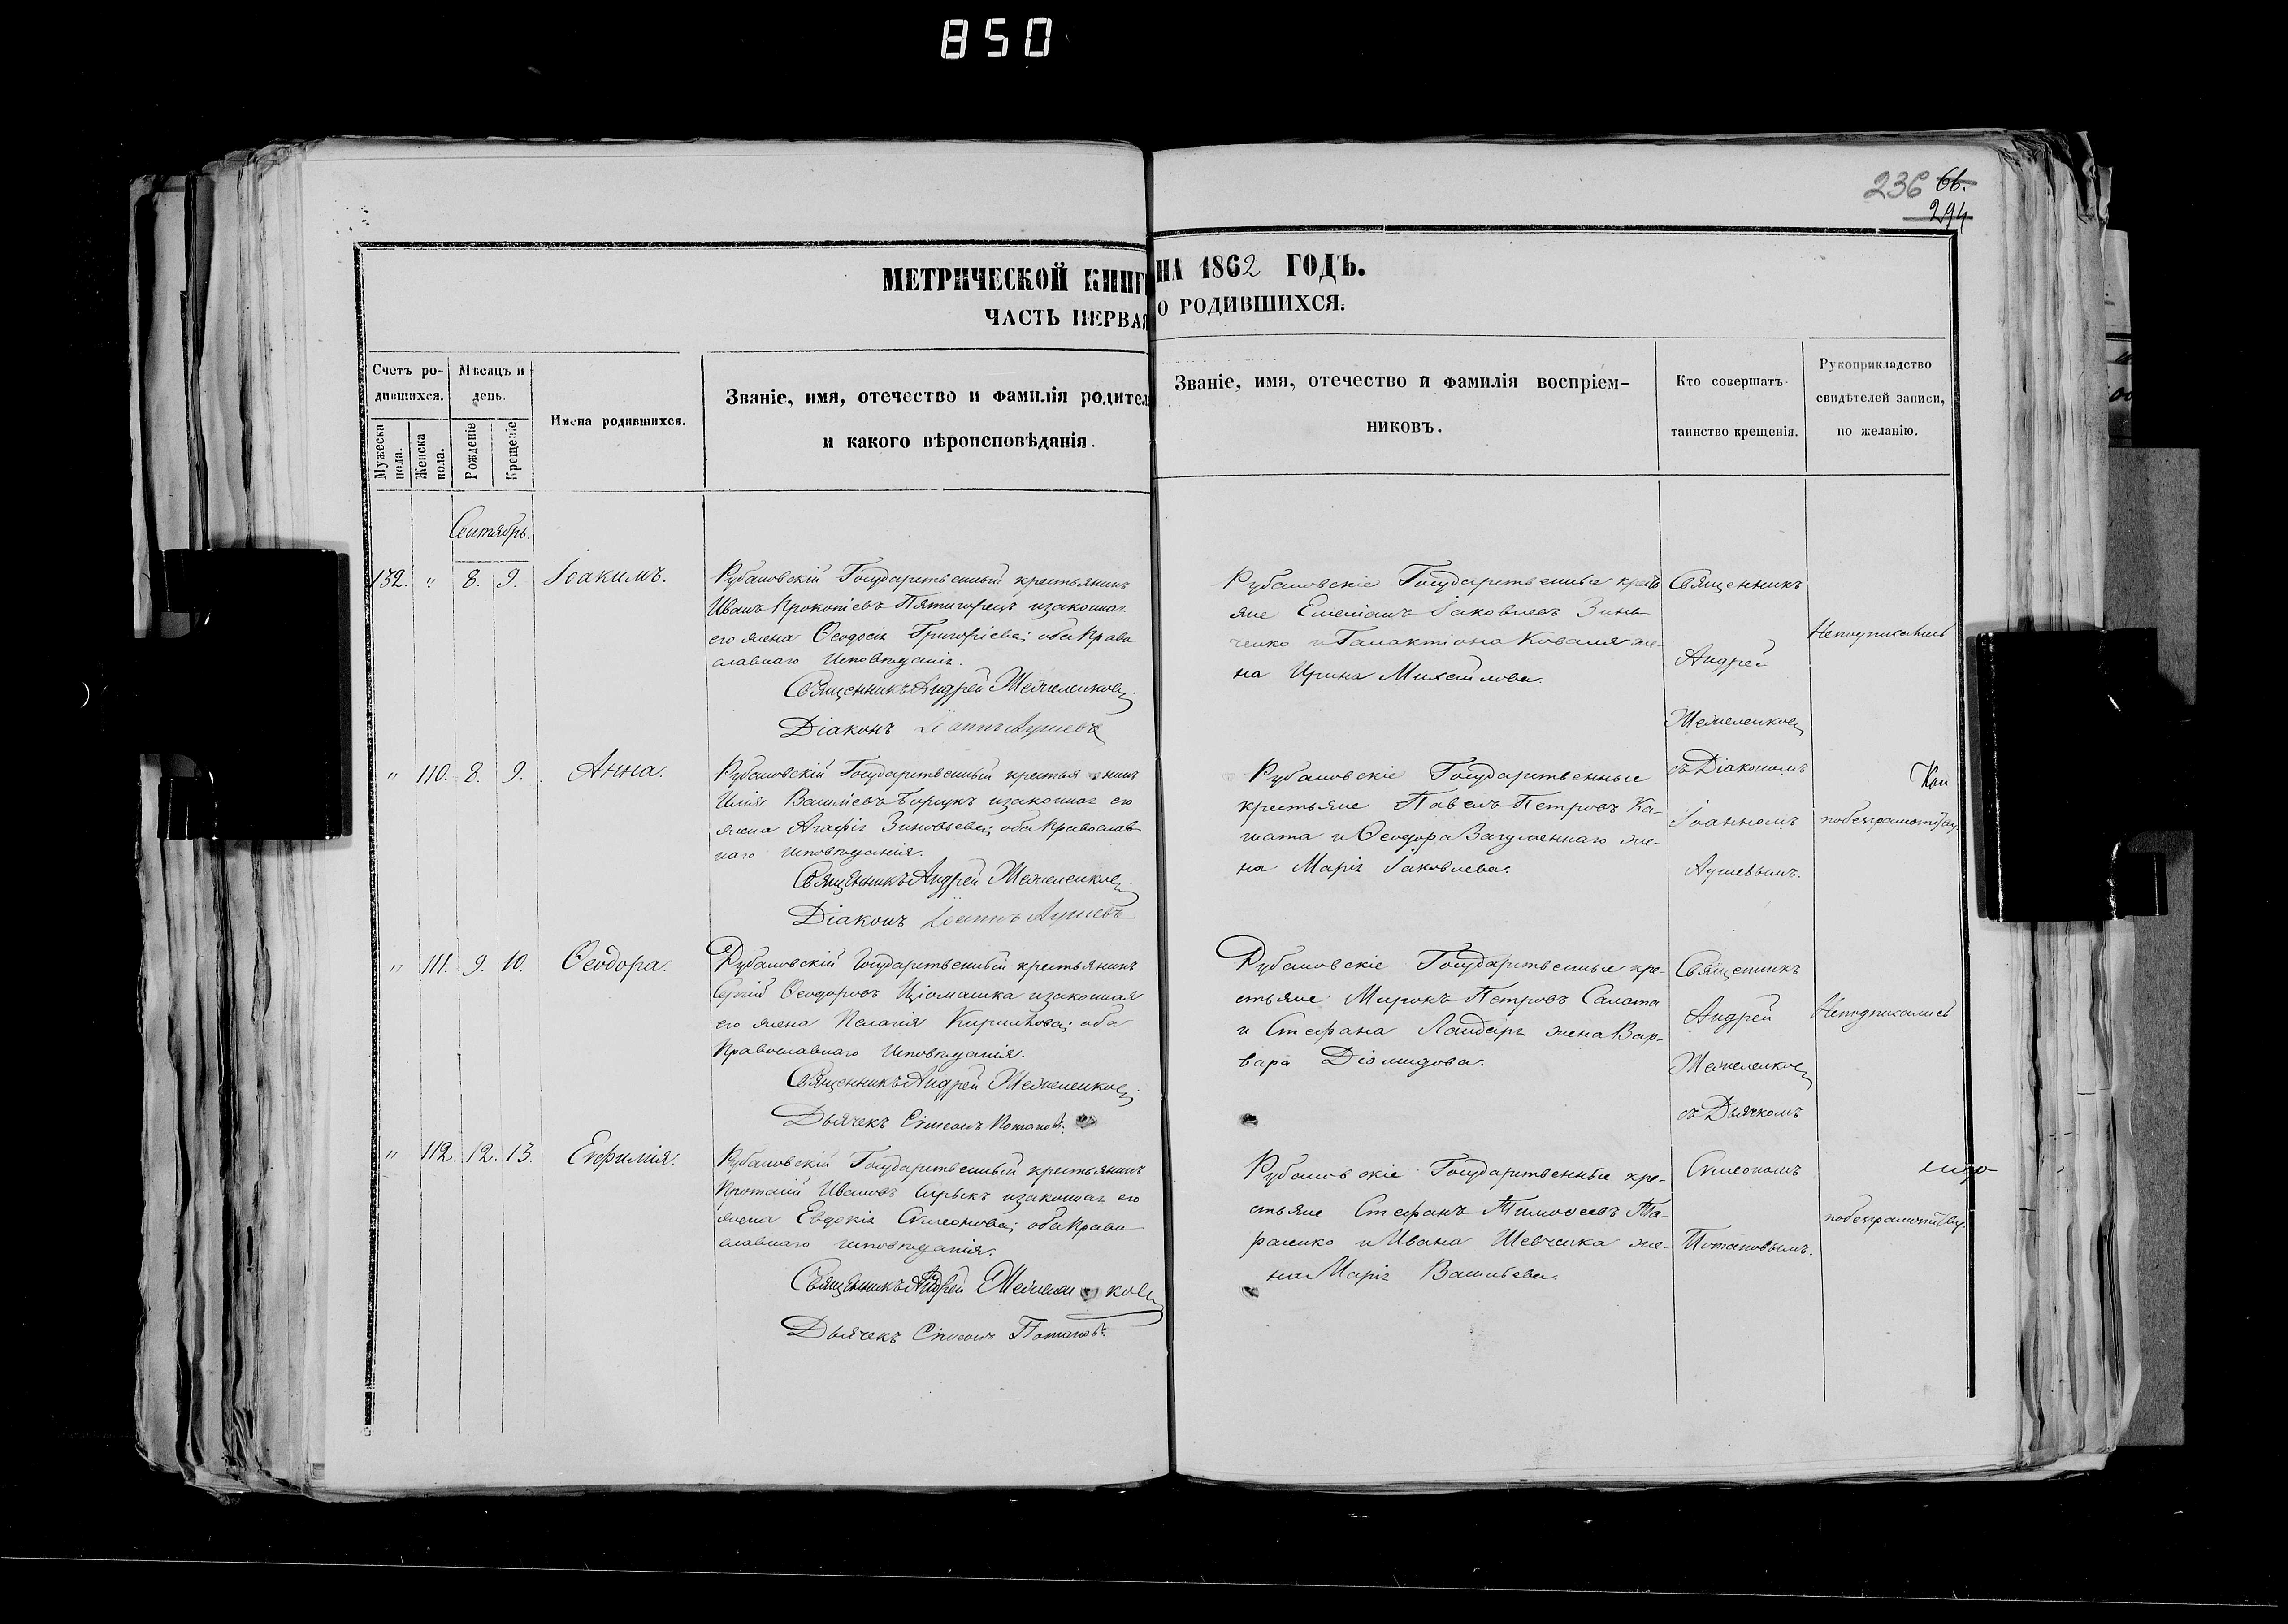 850
236 66.
294
МЕТРИЧЕСКОЙ КНИГ НА 1862 ГОДЪ.
ЧАСТЬ ПЕРВАЯ О РОДИВШИХСЯ.
Счетъ ро-
дившихся.
Мужеска пола.
Женска пола.
Мѣсяцъ и
день.
Рожденіе
Крещеніе
Имена родившихся.
Званіе, имя, отечество и фамилія родител
и какого вѣроисповѣданія.
Званіе, имя, отечество и фамилія воспріем-
никовъ.
Кто совершатъ
таинство крещенія.
Рукоприкладство
свидѣтелей записи,
по желанію.
Сентябрь.
132. " 8. 9. Іоакимъ.
Рубановскій Государственный крестьянинъ
Иванъ Прокопіевъ Пятигорецъ изаконная
его жена Ѳеодосія Григоріева; оба Право
славнаго Исповѣданія.
Священникъ Андрей
Діаконъ Іоаннъ
Рубановскіе Государственные кресть
яне Емеліанъ Іаковлевъ Зинь
ченко и Галактіона Коваля же-
на Ирина Михайлова.
Священникъ
Андрей
съ Діакономъ
Іоанномъ
Неподписались
" 110. 8. 9. Анна.
Рубановскій Государственный крестьянинъ
Илія Васильевъ изаконная его
жена Агафія Зиновьева; оба Православ
наго исповѣданія.
Священникъ Андрей
Діаконъ Іоаннъ
Рубановскіе Государственные
крестьяне Павелъ Петровъ Ка-
шата и Ѳеодора Загуменнаго же-
на Марія Іаковлева.
побезграмотству.
" 111. 9. 10. Ѳеодора.
Рубановскій Государственный крестьянинъ
Сергій Ѳеодоровъ изаконная
его жена Пелагія Кирилова; оба
Православнаго Исповѣданія.
Священникъ Андрей
Дьячекъ Сімеонъ Потаповъ.
Рубановскіе Государственные кре-
стьяне Миронъ Петровъ Салата
и Стефана жена Вар-
вара Діомидова.
Священникъ
Андрей
съ Дьячкомъ
Сімеономъ
Потаповымъ.
Неподписались
" 112. 12. 13. Евфимія.
Рубановскій Государственный крестьянинъ
Ивановъ изаконная его
жена Евдокія Сімеонова; оба Право
славнаго исповѣданія.
Священникъ Андрей
Дьячекъ Сімеонъ Потаповъ.
Рубановскіе Государственные кре-
стьяне Стефанъ Тимоѳеевъ Та-
ранко и Ивана Шевченка же-
на Марія Васильева.
побезграмотству.